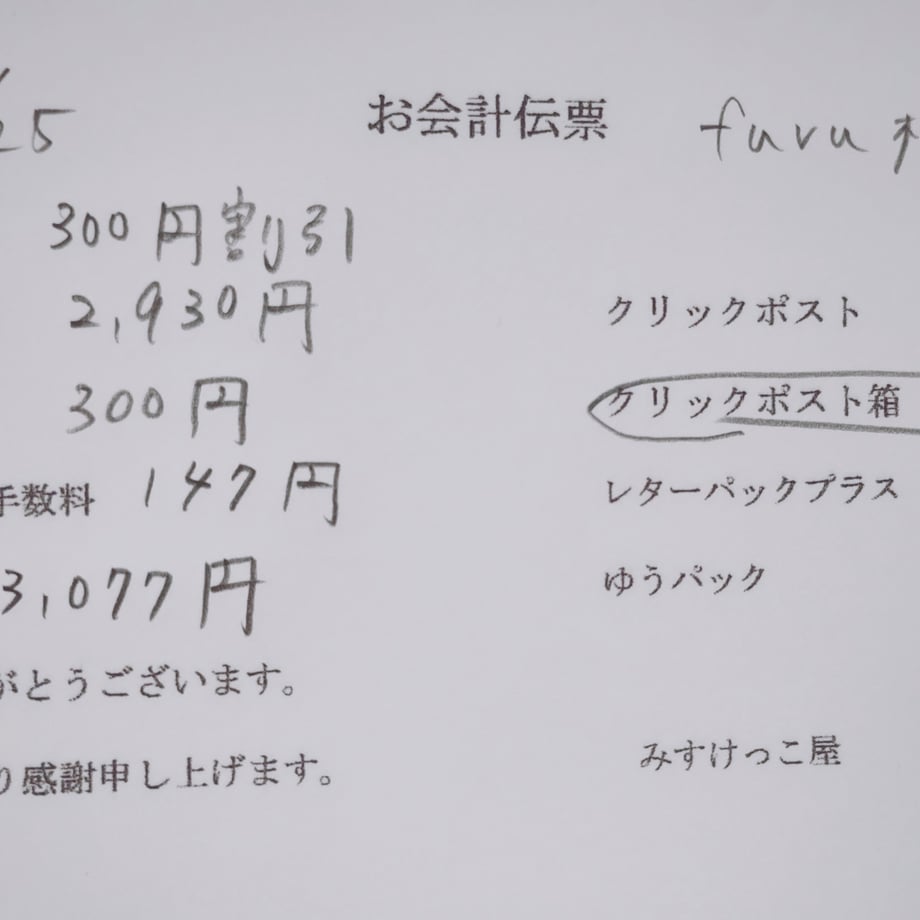 25
お会計伝票
furu
300円割り引
2,930円
クリックポスト
300円
クリックポスト箱
手数料 147円
レターパックプラス
3,077円
ゆうパック
がとうございます。
り感謝申し上げます。
みすけっこ屋